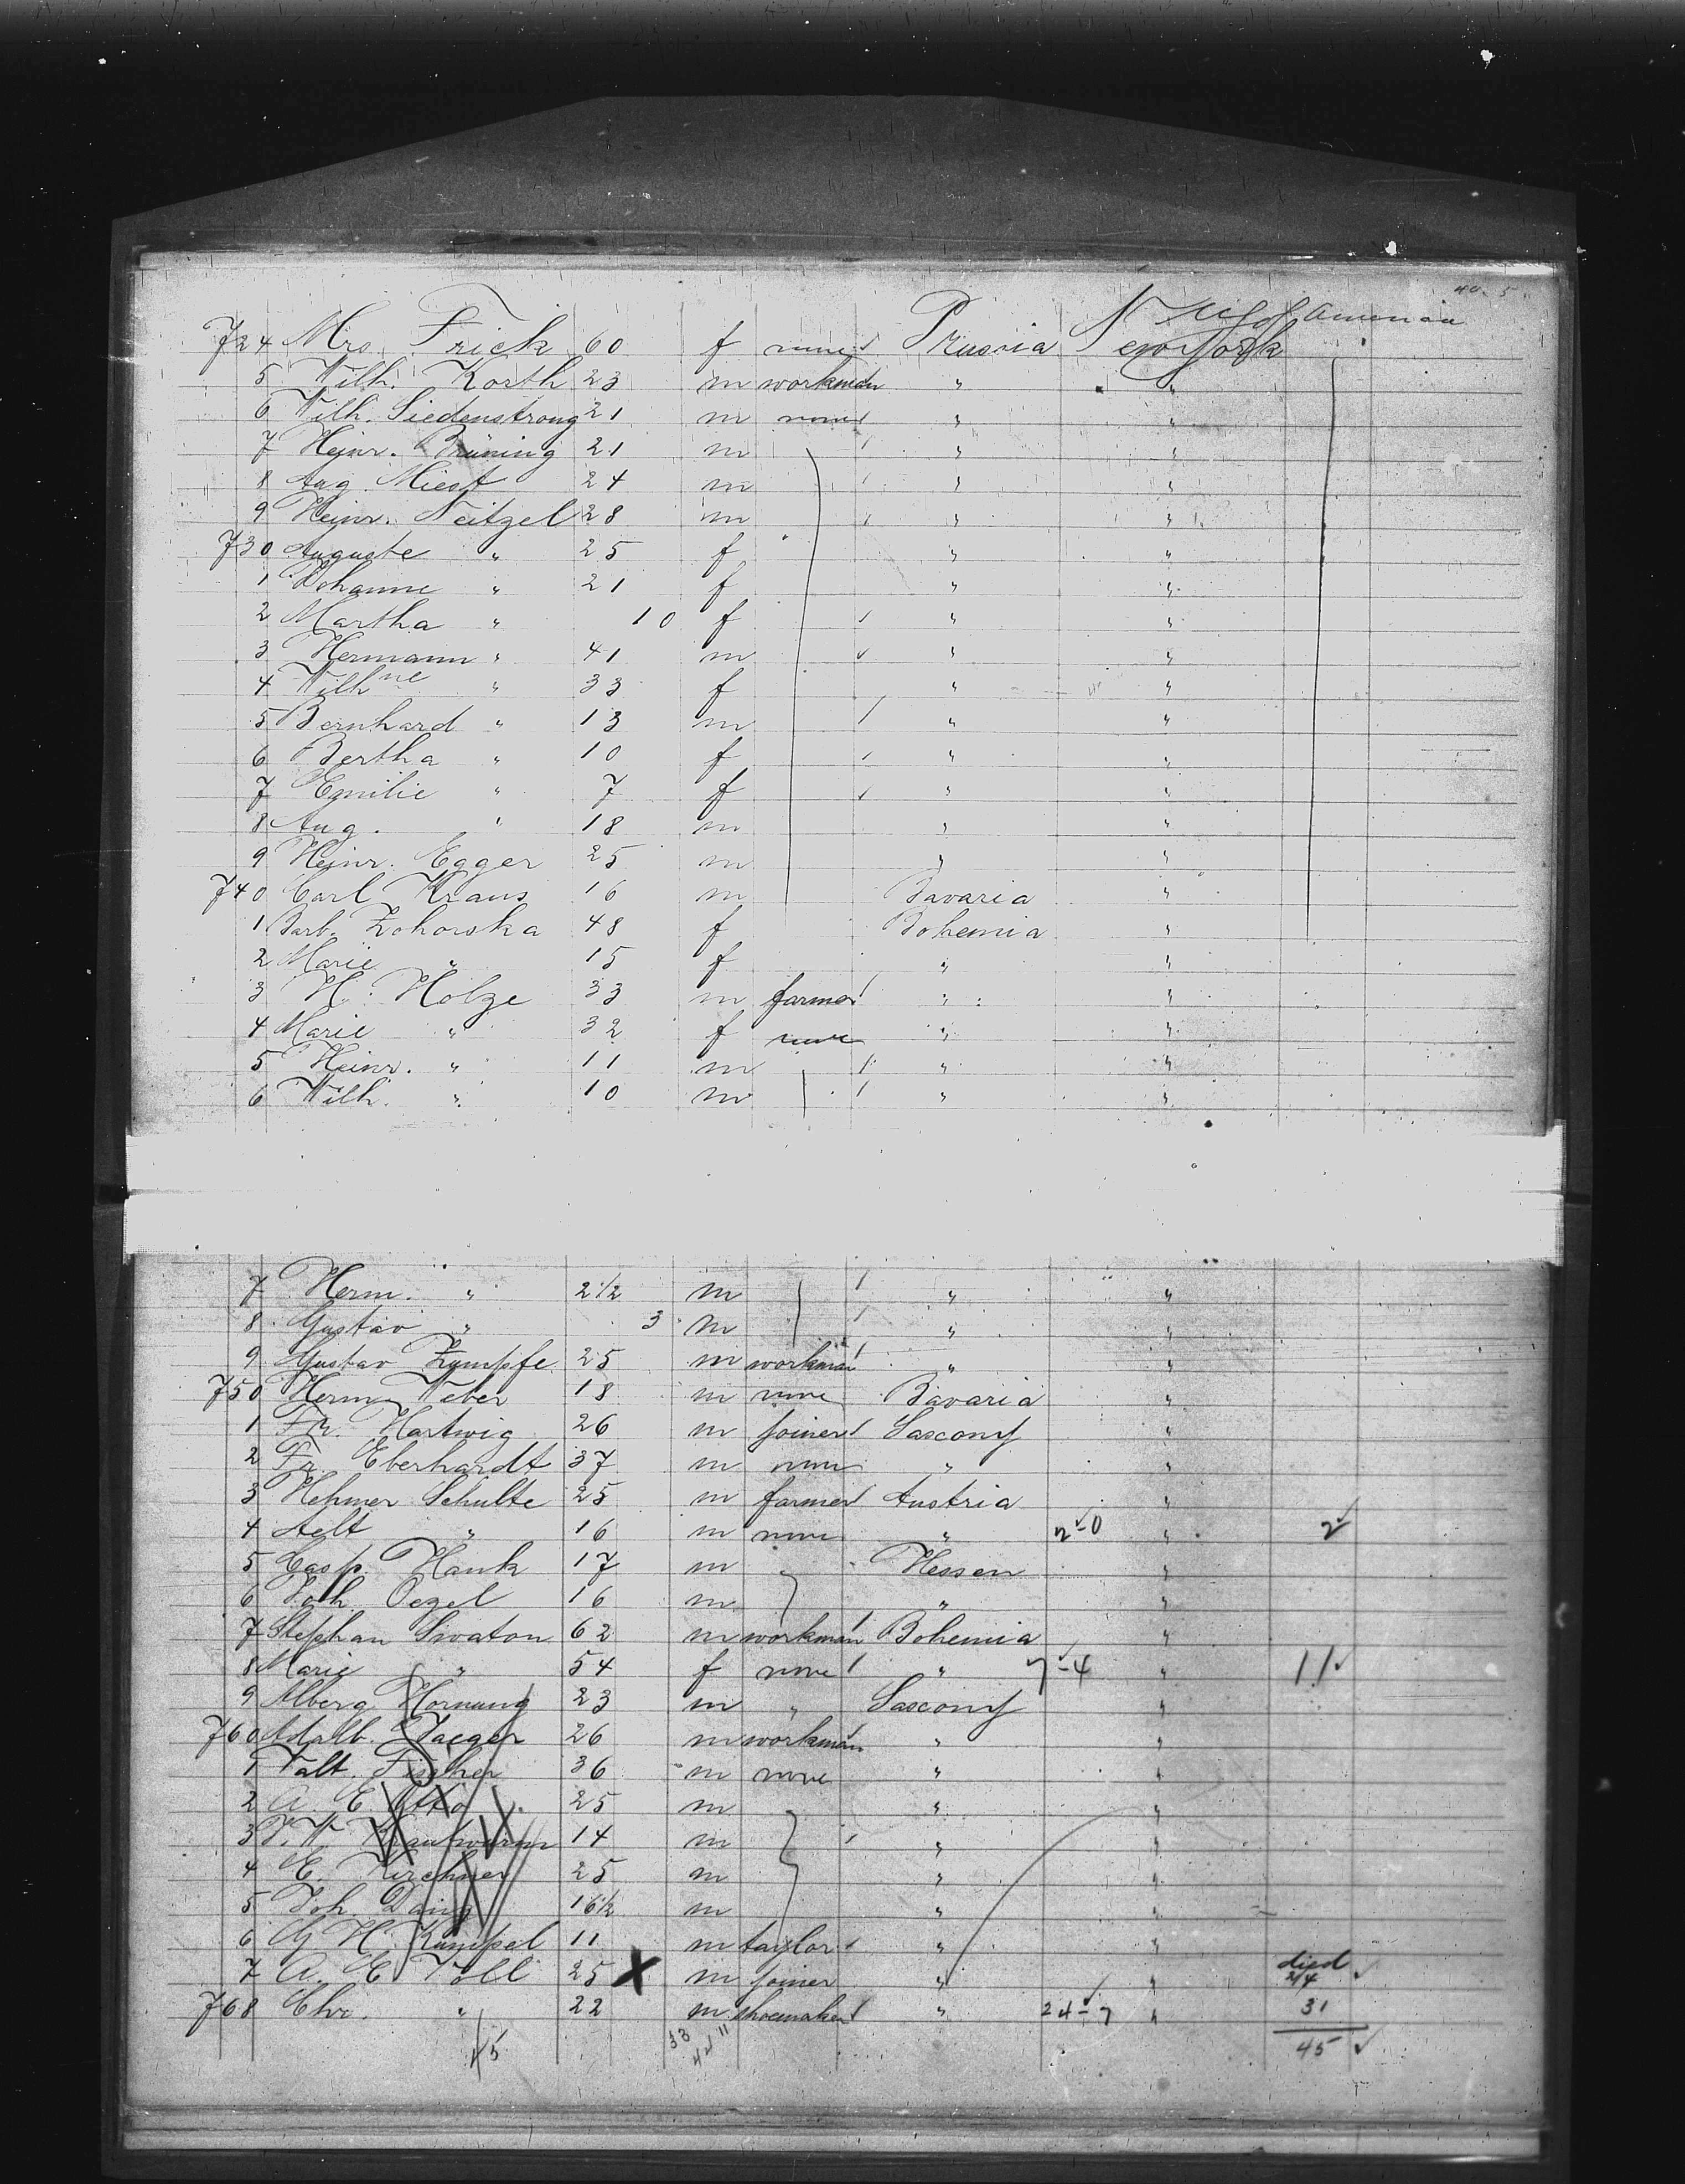 U S of America
724 Mrs. Frick 60 f none Prussia New York
5 Wilh. Korth 23 m workman " "
6 Wilh. Siedenstrong 21 m none " "
7 Heinr. Brüning 21 m " "
8 Aug. Miest 24 m " "
9 Heinr. Neitzel 28 m " "
730 Auguste " 25 f " "
1 Johanne " 21 f " "
2 Martha " 10 f " "
3 Hermann " 41 m " "
4 Wilhne " 33 f " "
5 Bernhard " 13 m " "
6 Bertha " 10 f " "
7 Emilie " 7 f " "
8 Aug. " 18 m " "
9 Heinr. Egger 25 m " "
740 Carl Kraus 16 m Bavaria "
1 Barb. Zohorska 48 f Bohemia "
2 Marie " 15 f " "
3 H. Holze 33 m farmer " "
4 Marie " 32 f none " "
5 Heinr. " 11 m " "
6 Wilh. " 10 m " "
7 Herm. " 2 1/2 m " "
8 Gustav " 3 m " "
9 Gustav Zumpfe 25 m workman " "
750 Herm. Weber 18 m none Bavaria "
1 Fr. Hartwig 26 m joiner Saxony "
2 Fr. Eberhardt 37 m none " "
3 Hehmer Schulte 25 m farmer Austria "
4 Aelt " 16 m none " 2-0 " 2
5 Casp. Hank 17 m Hessen "
6 Joh. Oezel 16 m " "
7 Stephan Swaton 62 m workman Bohemia "
8 Marie " 54 f none " 7-4 " 11
9 Alberg Hornung 23 m " Saxony "
760 Adalb. Jaeger 26 m workman " "
1 Valt. Fischer 36 m none " "
2 A. E. Otto 25 m " "
3 F. W. Krautwurm 14 m " "
4 E. Kirchner 25 m " "
5 Joh. Daing 16 1/2 m " "
6 G H. Kumpel 11 m taylor " "
7 A. E. Voll 25 X m joiner " " died 2/4
768 Chr. " 22 m shoemaker " 24-7 " 31
45 33 11 44 45